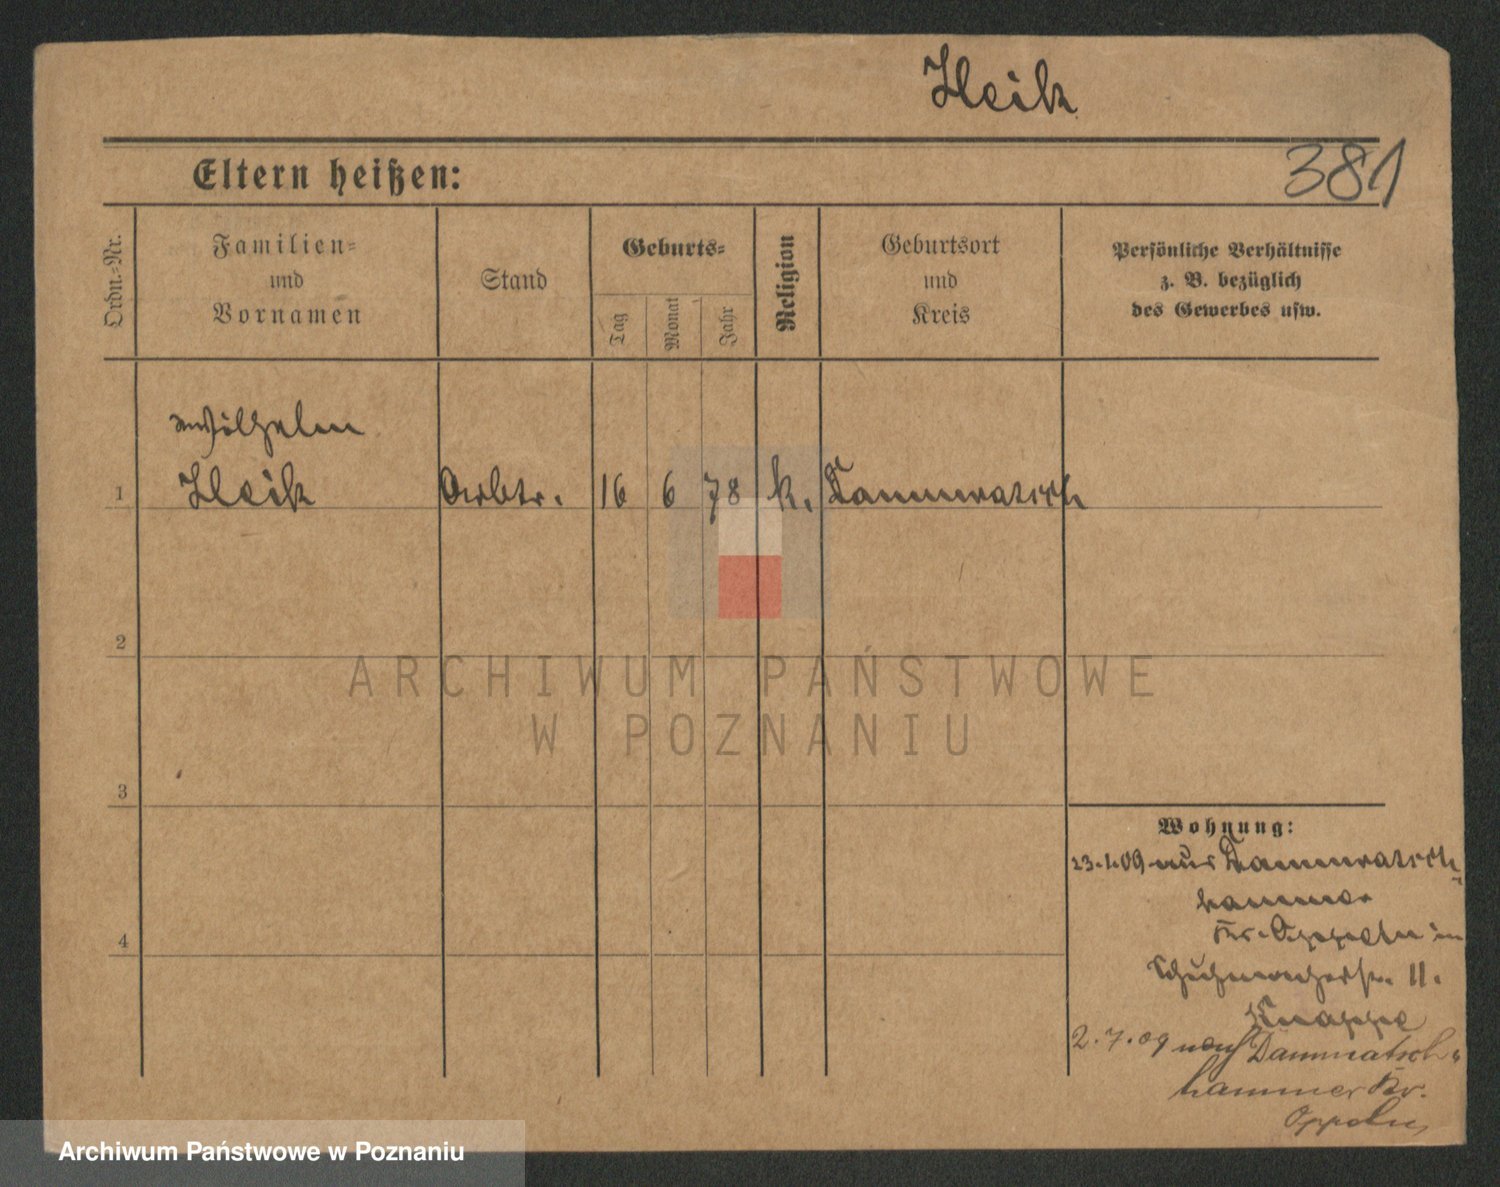 Heik
381
Eltern heißen:
Ordn.=Nr.
Familien=
und
Vornamen
Stand
Geburts=
Tag
Monat
Jahr
Religion
Geburtsort
und
Kreis
Persönliche Verhältnisse
z. B. bezüglich
des Gewerbes usw.
Wilhelm
1 Heik Arbtr. 16 6 78 k. Dammratsch
2
ARCHIWUM PAŃSTWOWE
W POZNANIU
3
4
Wohnung:
23.1.09 aus Dammratsch-
hammer
Kr. Oppeln in
Schuhmacherstr. 11.
Knappe
2.7.09 nach Dammratsch-
hammer Kr.
Oppeln
Archiwum Państwowe w Poznaniu